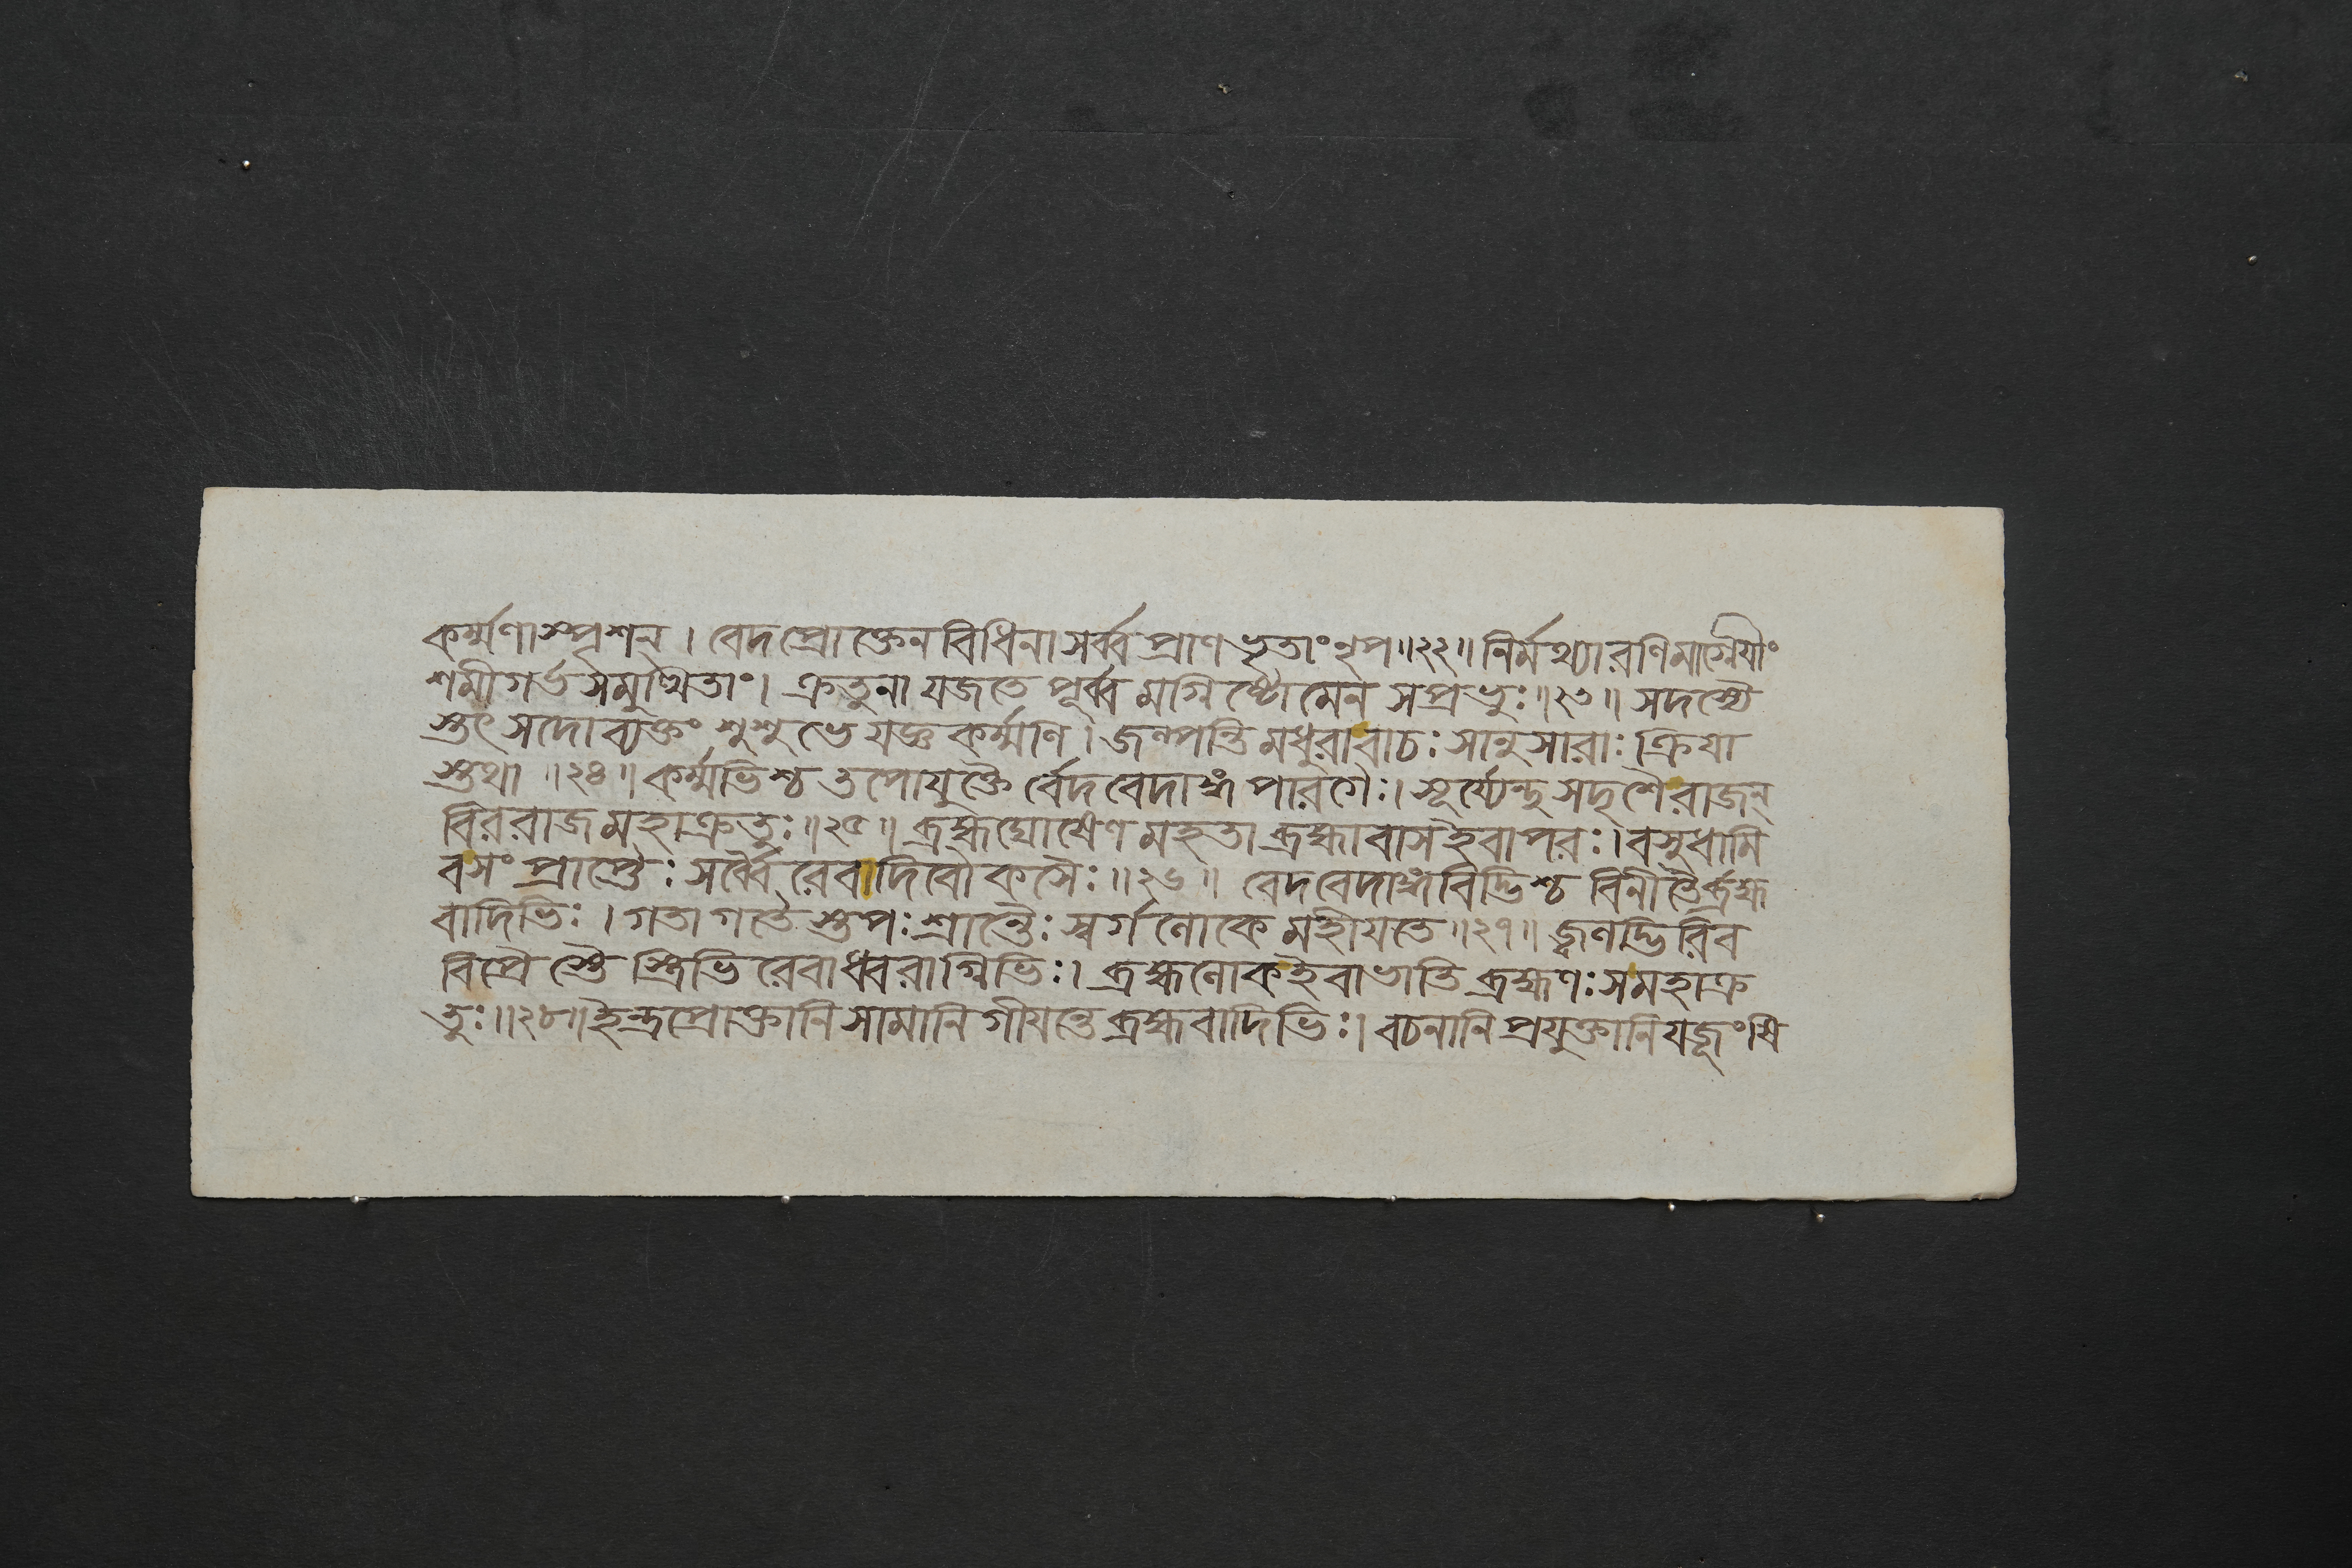 কর্ম্মণাস্পৃশন্ । বেদপ্রোক্তেনবিধিনাসর্ব্বপ্রাণভৃতাংনৃপ॥২২॥ নির্মথ্যারণিমাগ্নেযীং
শমীগর্ভসমুত্থিতাং। ক্রতুনা যজতে পূর্ব্ব মগ্নিষ্টোমেন সপ্রভুঃ॥২৩॥ সদস্যৈ
স্তুৎ সদো ব্যক্তং শুশুভে যজ্ঞকর্ম্মণি। জল্পন্তি মধুরাবাচঃ সানুসারাঃ ক্রিযা
স্তথা ॥২৪॥ কর্ম্মভিশ্চ তপোযুক্তৈ র্বেদবেদাঙ্গ পারগৈঃ। সূর্য্যেন্দুসদৃশৈরাজন্
বিররাজমহাক্রতুঃ॥২৫॥ ব্রহ্মঘোষেণ মহতা ব্রহ্মাবাসইবাপরঃ।বসুধামি
বসং প্রাপ্তৈঃ সর্ব্বৈরেবাদিবৌকসৈঃ॥২৬॥ বেদবেদাঙ্গবিদ্ভিশ্চ বিনীতৈর্ব্রহ্ম
বাদিভিঃ । গতাগতৈ স্তপঃশ্রান্তৈঃ স্বর্গলোকে মহীযতে॥২৭॥ জ্বলদ্ভিরিব
বিপ্রৈ স্তৈ স্ত্রিভিরেবাধ্বরাগ্নিভিঃ। ব্রহ্মলোকইবাভাতি ব্রহ্মণঃসমহাক্র
তুঃ॥২৮॥ইন্দ্রপ্রোক্তানিসামানি গীযন্তে ব্রহ্মবাদিভিঃ। বচনানি প্রযুক্তানিযজূংষি